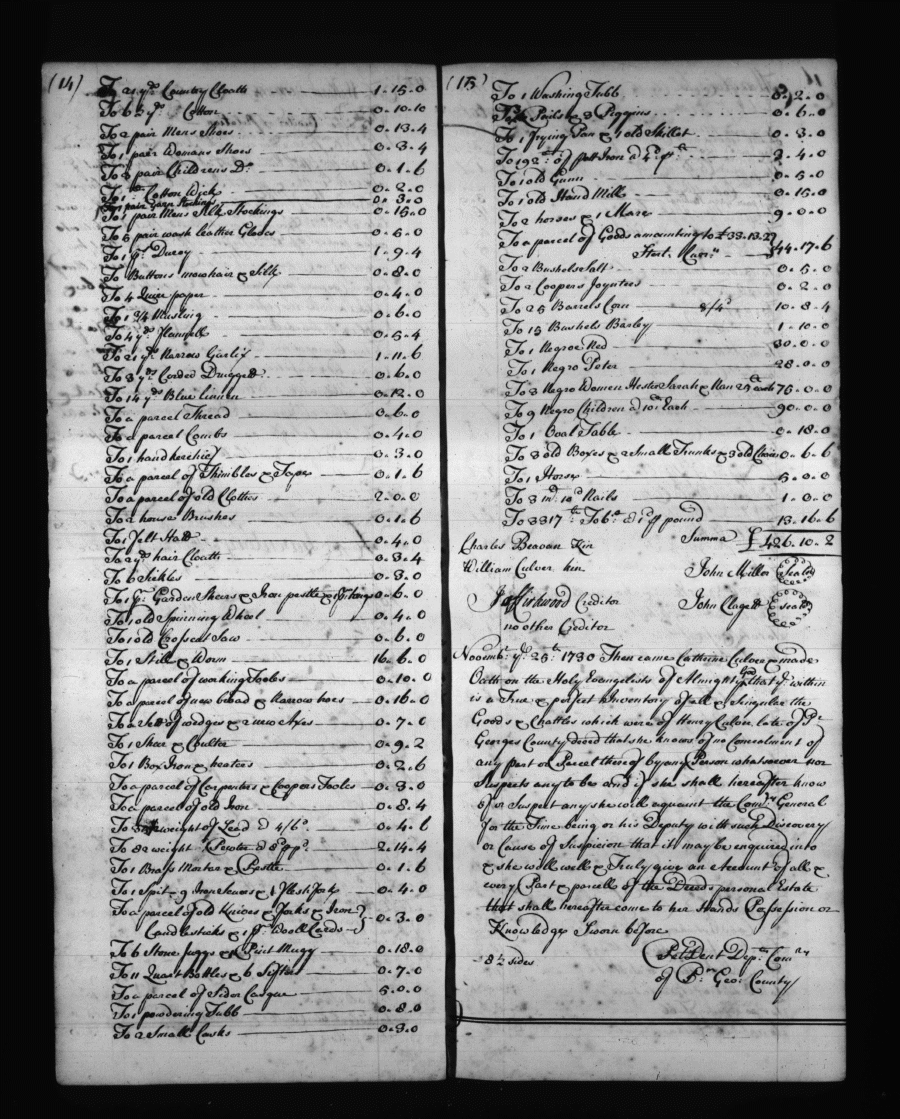 (14)
To 21 yds Country Cloath 1 - 15 - 0
To 6½ yd Cotton 0 - 10 - 10
To 2 pair Mens Shoes 0 - 13 - 4
To 1 pair Womans Shoes 0 - 3 - 4
To 3 pair Childrens Do 0 - 1 - 6
To 1 lb Cotton Wick 0 - 2 - 0
To 1 pair Yarn Stockings 0 - 3 - 0
To 1 pair Mens Silk Stockings 0 - 15 - 0
To 6 pair wash leather Gloves 0 - 6 - 0
To 1 ps Duroy 1 - 9 - 4
To Buttons mowhair & Silk 0 - 8 - 0
To 4 Quier paper 0 - 4 - 0
To 1 3/4 Musling 0 - 6 - 0
To 4 yds Flannell 0 - 5 - 4
To 21 yds Narrow Garlix 1 - 11 - 6
To 3 yds Corded Druggett 0 - 6 - 0
To 14 yds Blue Linnen 0 - 12 - 0
To a parcel Thread 0 - 6 - 0
To a parcel Combs 0 - 4 - 0
To 1 handkerchief 0 - 3 - 0
To a parcel of Thimbles & Tape 0 - 1 - 6
To a parcel of old Cloths 2 - 0 - 0
To 2 house Brushes 0 - 1 - 6
To 1 Felt Hatt 0 - 4 - 0
To 2 yds hair Cloath 0 - 3 - 4
To 6 Sickles 0 - 3 - 0
To 1 pr Garden Shears & Iron pestle & 0 - 6 - 0
To 1 old Spinning Wheel 0 - 4 - 0
To 1 old Crosscut Saw 0 - 6 - 0
To 1 Still & Worm 16 - 6 - 0
To a parcel of working Tooles 0 - 10 - 0
To a parcel of new broad & Narrow hoes 0 - 16 - 0
To a Sett of wedges & 2 new Axes 0 - 7 - 0
To 1 Shear & Coulter 0 - 9 - 2
To 1 Box Iron & heaters 0 - 2 - 6
To a parcel of Carpenters & Coopers Tooles 0 - 3 - 0
To a parcel of old Iron 0 - 8 - 4
To weight of Lead @ 4/6 0 - 4 - 6
To 82 weight Pewter @ 8d pp 2 - 14 - 4
To 1 Brass Mortar & Pestle 0 - 1 - 6
To 1 Spit & Iron Skewers & 1 flesh fork 0 - 4 - 0
To a parcel of old Knives & Forks & Iron
Candlesticks & 1 pr Wooll Cards 0 - 3 - 0
To 6 Stone Juggs & Pint Mugg 0 - 18 - 0
To 11 Quart Bottles & 6 Sifters 0 - 7 - 0
To a parcel of Sider Casque 5 - 0 - 0
To 1 powdering Tubb 0 - 8 - 0
To 2 Small Casks 0 - 3 - 0
(15)
To 1 Washing Tubb 0 - 2 - 0
To Pails & 3 Piggins 0 - 6 - 0
To 1 Frying Pan & 1 old Skillet 0 - 3 - 0
To 192 lb of pott Iron @ 2 - 4 - 0
To 1 old Gunn 0 - 5 - 0
To 1 old Hand Mill 0 - 15 - 0
To 2 horses & 1 Mare 9 - 0 - 0
To a parcel of Goods amounting to £
Sterl. 44 - 17 - 6
To 2 Bushels Salt 0 - 5 - 0
To 2 Coopers Joynters 0 - 2 - 0
To 25 Barrels Corn 8/4d 10 - 8 - 4
To 15 Bushels Barley 1 - 10 - 0
To 1 Negroe Ned 30 - 0 - 0
To 1 Negro Peter 28 - 0 - 0
To 3 Negro Women Hester Sarah & Nan 25 each 75 - 0 - 0
To 9 Negro Children @ 10 Each 90 - 0 - 0
To 1 Oval Table 0 - 18 - 0
To 3 old Boxes & 2 Small Trunks & 3 old Chairs 0 - 6 - 6
To 1 Horse 5 - 0 - 0
To 3 m 10d Nails 1 - 0 - 0
To 3317 lb Tobo @ 1d p pound 13 - 16 - 6
Charles Beavan Kin Summa £426 - 10 - 2
William Culver kin John Miller Seale
Jas Kirkwood Creditor John Clagett Seale
no other Creditor
Novembr ye 25th 1730 Then came Catherine Culver & made
Oath on the Holy Evangelists of Almighty God that ye within
is a True & perfect Inventory of all & Singular the
Goods & Chattles which were of Henry Culver late of Pr
Georges County deced that she knows of no Concealment of
any part or Parcel thereof by any Person whatsoever nor
Suspects any to be and if she shall hereafter know
of or Suspect any she will acquaint the Comry General
for the Time being or his Deputy with such Discovery
or Cause of Suspicion that it may be enquired into
& she will well & Truly give an Account of all &
every Part & parcell of the Deceds personal Estate
that shall hereafter come to her Hands Possession or
Knowledge Sworn before
8½ sides Pet: Dent Depty Comry
of Pr Geo: County